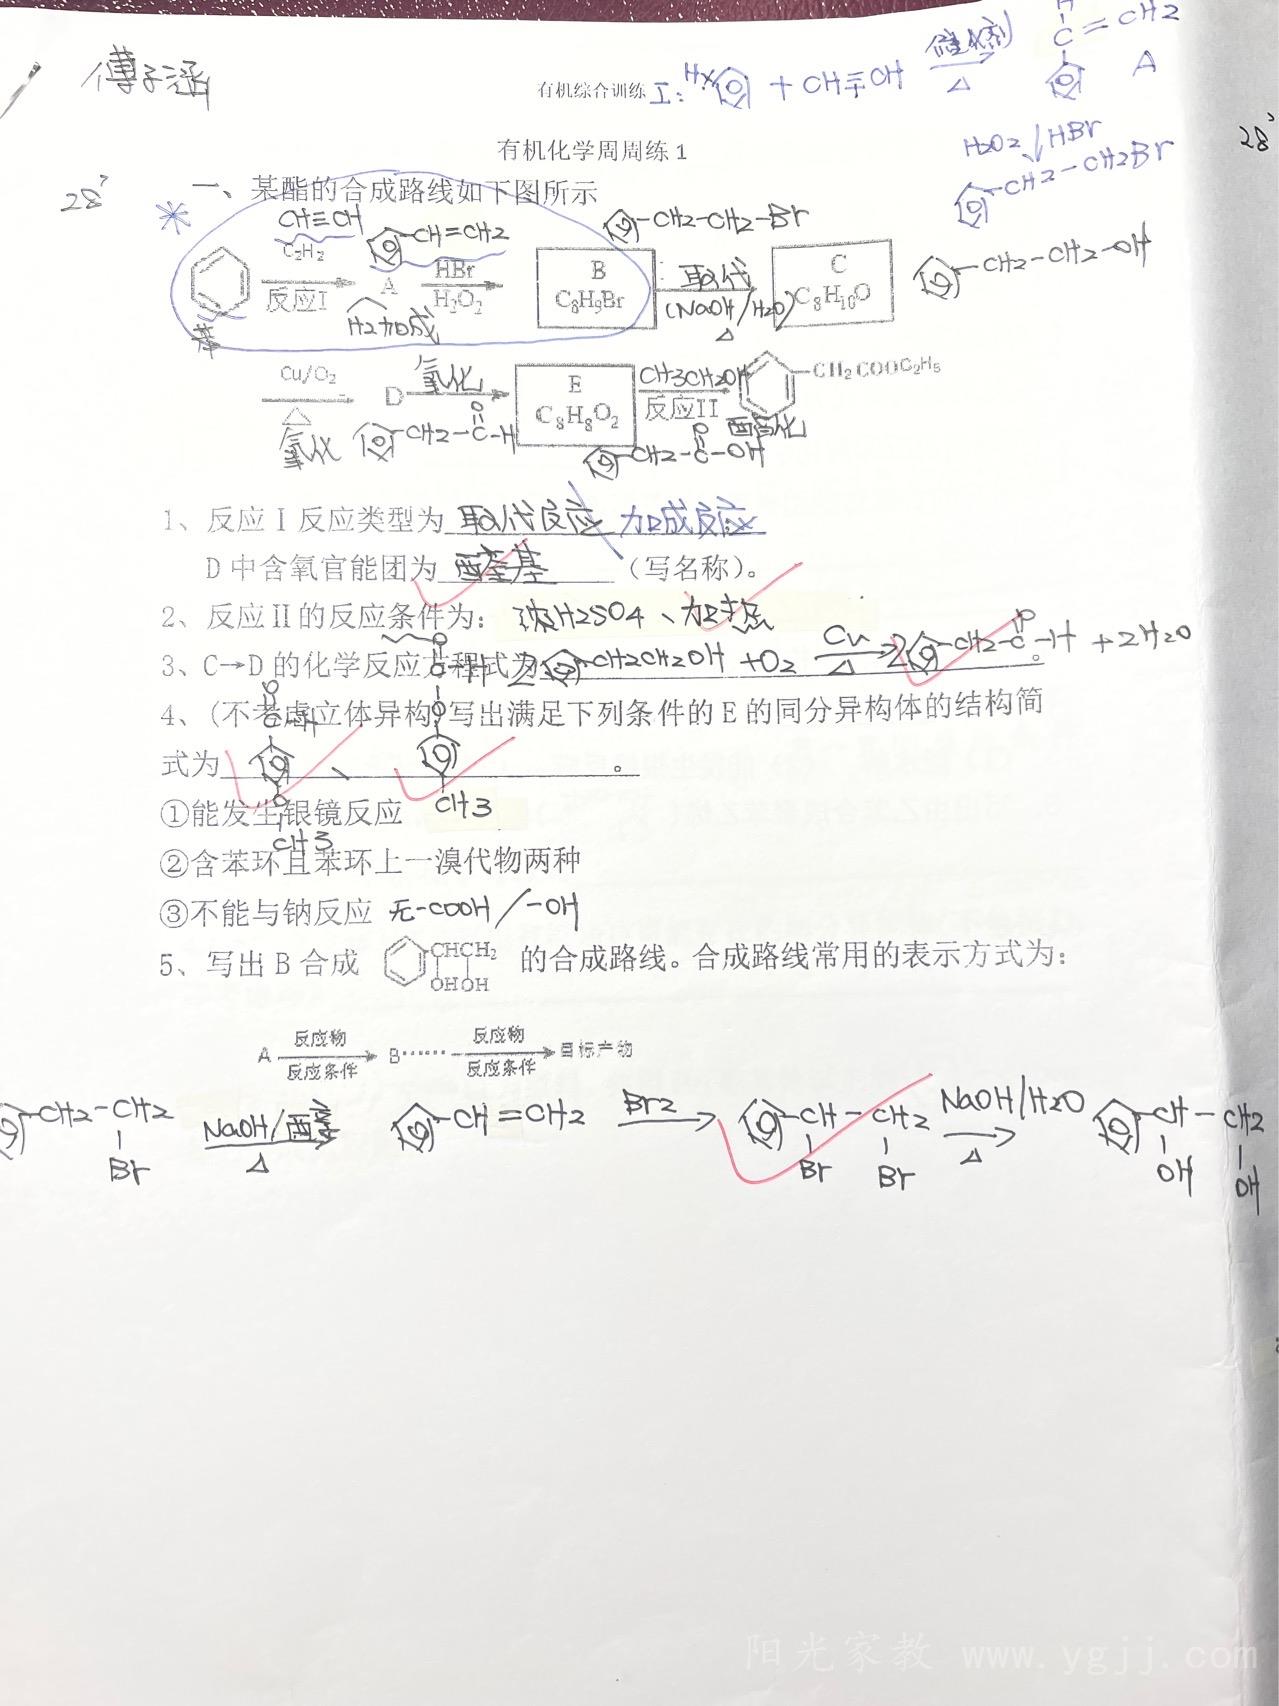 傅子涵
有机综合训练 I: H + CH≡CH 催化剂 △ H C=CH2 A
H2O2 HBr
CH2-CH2Br
28'
有机化学周周练1
28'
一、某酯的合成路线如下图所示
CH≡CH CH=CH2 CH2-CH2-Br
C2H2 反应I A HBr H2O2 B C8H9Br 取代 (NaOH/H2O) △ C C8H10O CH2-CH2-OH
苯 H2加成
Cu/O2 △ D 氧化 E C8H8O2 CH3CH2OH 反应II CH2COOC2H5
氧化 CH2-C-H O CH2-C-OH O 酯化
1、反应I反应类型为 取代反应 加成反应
D中含氧官能团为 醛基 (写名称)。
2、反应II的反应条件为: 浓H2SO4、加热
3、C→D的化学反应方程式为 2 CH2CH2OH +O2 Cu △ 2 CH2-C-H O +2H2O 。
4、(不考虑立体异构)写出满足下列条件的E的同分异构体的结构简
式为 、 CH3 。
①能发生银镜反应
CH3
②含苯环且苯环上一溴代物两种
③不能与钠反应 无-COOH/-OH
5、写出B合成 CHCH2 OHOH 的合成路线。合成路线常用的表示方式为:
A 反应物 反应条件 B…… 反应物 反应条件 目标产物
CH2-CH2 Br NaOH/醇 △ CH=CH2 Br2 CH-CH2 Br Br NaOH/H2O △ CH-CH2 OH OH
阳光家教 www.ygjj.com